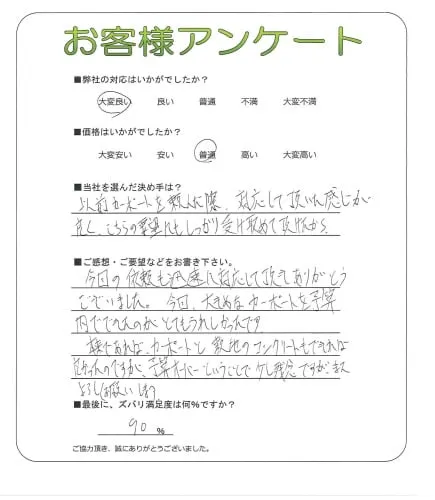 お客様アンケート
■弊社の対応はいかがでしたか？
大変良い 良い 普通 不満 大変不満
■価格はいかがでしたか？
大変安い 安い 普通 高い 大変高い
■当社を選んだ決め手は？
以前カーポートを頼んだ際、対応して頂いた感じが
良く、こちらの要望にもしっかり受け止めて頂けたから
■ご感想・ご要望などをお書き下さい。
今回の依頼も迅速に対応して頂きありがとう
ございました。今回、大きめなカーポートを予算
内でできたのがとてもうれしかったです
であれば、カーポートと敷地のコンクリートもできれば
のですが、予算オーバーということで少し残念ですが、また
よろしくお願いします
■最後に、ズバリ満足度は何%ですか？
90 %
ご協力頂き、誠にありがとうございました。